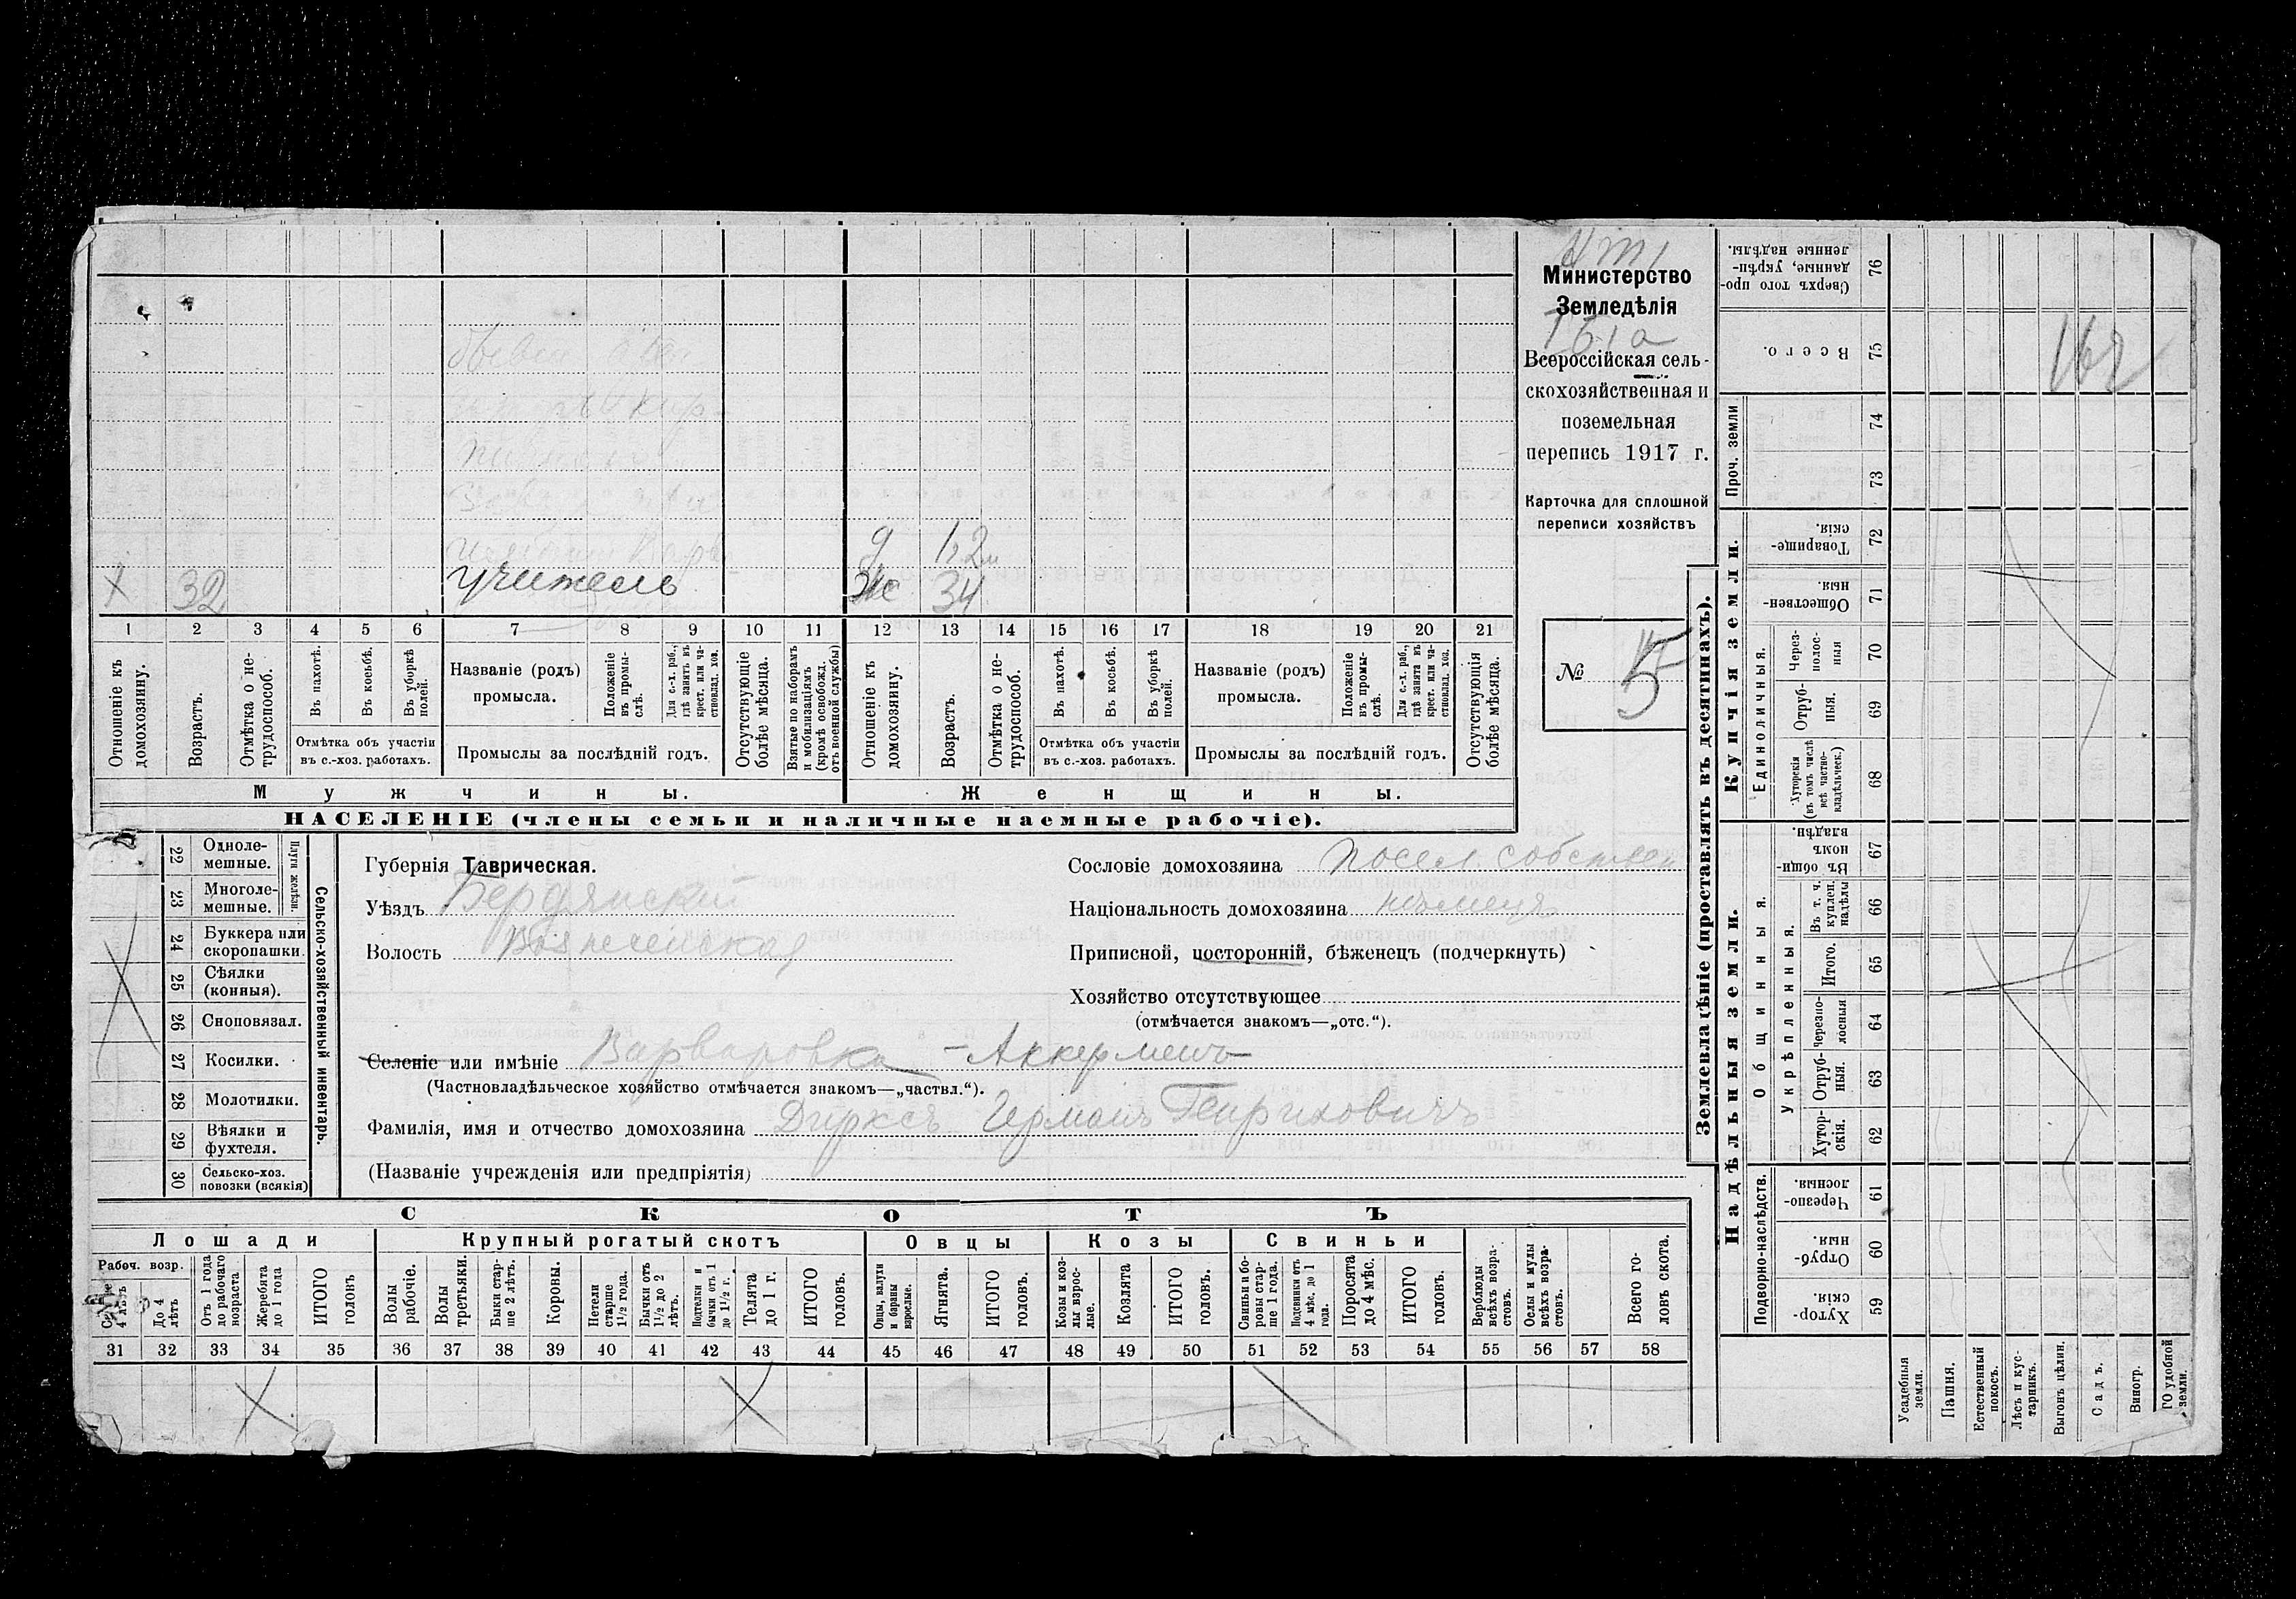 Министерство
Земледѣлія
Всероссійская сель-
скохозяйственная и
поземельная
перепись 1917 г.
Карточка для сплошной
переписи хозяйствъ
№ 5
х 32 учитель Ж 34
д 1,2м
1 2 3 4 5 6 7 8 9 10 11 12 13 14 15 16 17 18 19 20 21
Отношеніе къ домохозяину.
Возрастъ.
Отмѣтка о не-трудоспособ.
Въ пахотѣ.
Въ косьбѣ.
Въ уборкѣ полей.
Отмѣтка объ участіи
въ с.-хоз. работахъ.
Названіе (родъ)
промысла.
Положеніе въ промы-слѣ.
Для с.-х. раб., гдѣ занятъ въ крест. или ча-стновлад. хоз.
Промыслы за послѣдній годъ.
Отсутствующіе болѣе мѣсяца.
Взятые по наборамъ и мобилизаціямъ (кромѣ освобожд. отъ военной службы)
Отношеніе къ домохозяину.
Возрастъ.
Отмѣтка о не-трудоспособ.
Въ пахотѣ.
Въ косьбѣ.
Въ уборкѣ полей.
Отмѣтка объ участіи
въ с.-хоз. работахъ.
Названіе (родъ)
промысла.
Положеніе въ промы-слѣ.
Для с.-х. раб., гдѣ занята въ крест. или ча-стновлад. хоз.
Промыслы за послѣдній годъ.
Отсутствующія болѣе мѣсяца.
Мужчины. Женщины.
НАСЕЛЕНІЕ (члены семьи и наличные наемные рабочіе).
22 Одноле-мешные.
23 Многоле-мешные.
Плуги желѣзн.
24 Буккера или скоропашки.
25 Сѣялки (конныя).
26 Сноповязал.
27 Косилки.
28 Молотилки.
29 Вѣялки и фухтеля.
30 Сельско-хоз. повозки (всякія)
Сельско-хозяйственный инвентарь.
Губернія Таврическая.
Уѣздъ Бердянский
Волость
Сословіе домохозяина посел. собствен
Національность домохозяина нѣмецъ
Приписной, посторонній, бѣженецъ (подчеркнуть)
Хозяйство отсутствующее
(отмѣчается знакомъ—„отс.“).
Селеніе или имѣніе Варваровка - Аккерменъ
(Частновладѣльческое хозяйство отмѣчается знакомъ—„частвл.“).
Фамилія, имя и отчество домохозяина Дирксъ Германъ Генриховичъ
(Названіе учрежденія или предпріятія)
СКОТЪ
Лошади Крупный рогатый скотъ Овцы Козы Свиньи
Рабоч. возр.
До 4 лѣтъ
Отъ 1 года до рабочаго возраста
Жеребята до 1 года
ИТОГО головъ
Волы рабочіе.
Волы третьяки.
Быки стар-ше 2 лѣтъ.
Коровы.
Нетели старше 1½ года.
Бычки отъ 1½ до 2 лѣтъ.
Подтелки и бычки отъ 1 до 1½ г.
Телята до 1 г.
ИТОГО головъ.
Овцы, валухи и бараны взрослые.
Ягнята.
ИТОГО головъ.
Козы и коз-лы взрос-лые.
Козлята
ИТОГО головъ.
Свиньи и бо-ровы стар-ше 1 года.
Подсвинки отъ 4 мѣс. до 1 года.
Поросята до 4 мѣс.
ИТОГО головъ.
Верблюды всѣхъ возра-стовъ.
Ослы и мулы всѣхъ возра-стовъ.
Всего го-ловъ скота.
31 32 33 34 35 36 37 38 39 40 41 42 43 44 45 46 47 48 49 50 51 52 53 54 55 56 57 58
Землевладѣніе (проставлять въ десятинахъ).
Надѣльныя земли. Купчія земли.
Проч. земли
Подворно-наслѣдств.
Общинныя.
Укрѣпленныя.
Единоличныя.
76 Сверхъ того про-данные, укрѣп-ленные надѣлы.
75 Всего.
74
73
72 Товарище-скія.
71 Обществен-ныя.
70 Через-полос-ныя
69 Отруб-ныя.
68 Хуторскія (въ томъ числѣ всѣ частно-владѣльческ.)
67 Въ общи-номъ владѣн.
66 Въ т. ч. куплен. надѣлы
65 Итого.
64 Черезпо-лосныя
63 Отруб-ныя.
62 Хутор-скія.
61 Черезпо-лосныя.
60 Отруб-ныя.
59 Хутор-скія.
Усадебныя земли.
Пашня.
Естественный покосъ.
Лѣсъ и кус-тарникъ.
Выгонъ цѣлин.
Садъ.
Виногр.
ГО удобной земли.